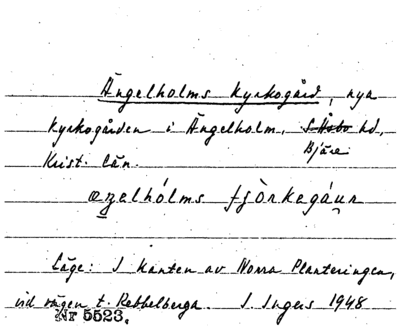 Ängelholms kyrkogård, nya
kyrkogården i Ängelholm, S. Åsbo hd,
Bjäre
Krist. län.
æŋelhólms fʝòrkegáu̯n
Läge: I kanten av Norra Planteringen,
vid vägen t. Rebbelberga. I. Ingers 1948
Nr 5523.